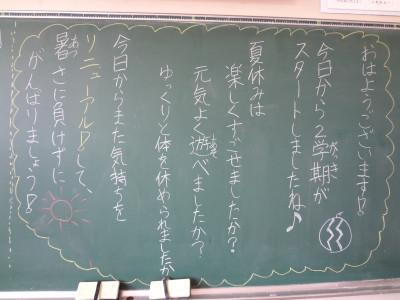 おはようございます!
今日から2学期が
スタートしましたね♪
夏休みは
楽しくすごせましたか?
元気よく遊べましたか?
ゆっくりと体を休められましたか
今日からまた気持ちを
リニューアル!して、
暑さに負けずに
がんばりましょう!